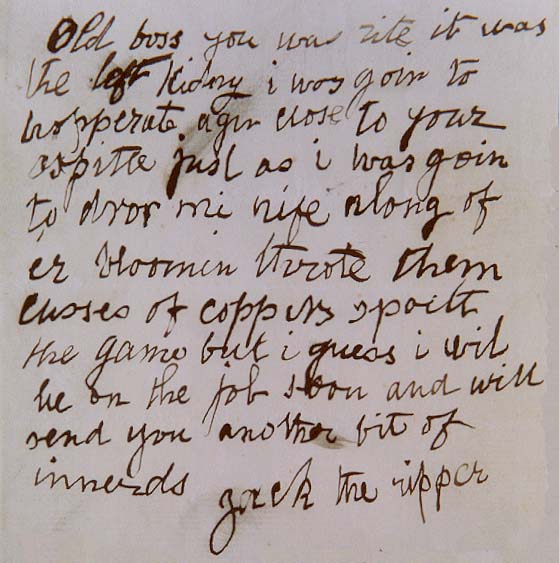 Old boss you was rite it was
the left kidny i was goin to
hopperate agin close to your
ospitle just as i was goin
to dror mi nife along of
er bloomin throte them
cusses of coppers spoilt
the game but i guess i wil
be on the job soon and will
send you another bit of
innerds
Jack the ripper